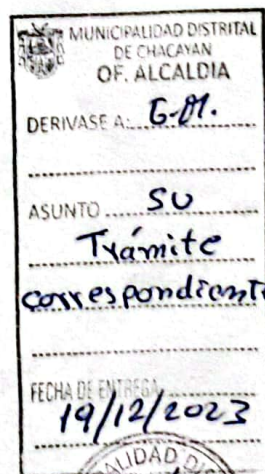 MUNICIPALIDAD DISTRITAL
DE CHACAYAN
OF. ALCALDIA
DERIVASE A: G.M.
ASUNTO SU
Trámite
correspondient
FECHA DE ENTREGA
19/12/2023
LIDAD D